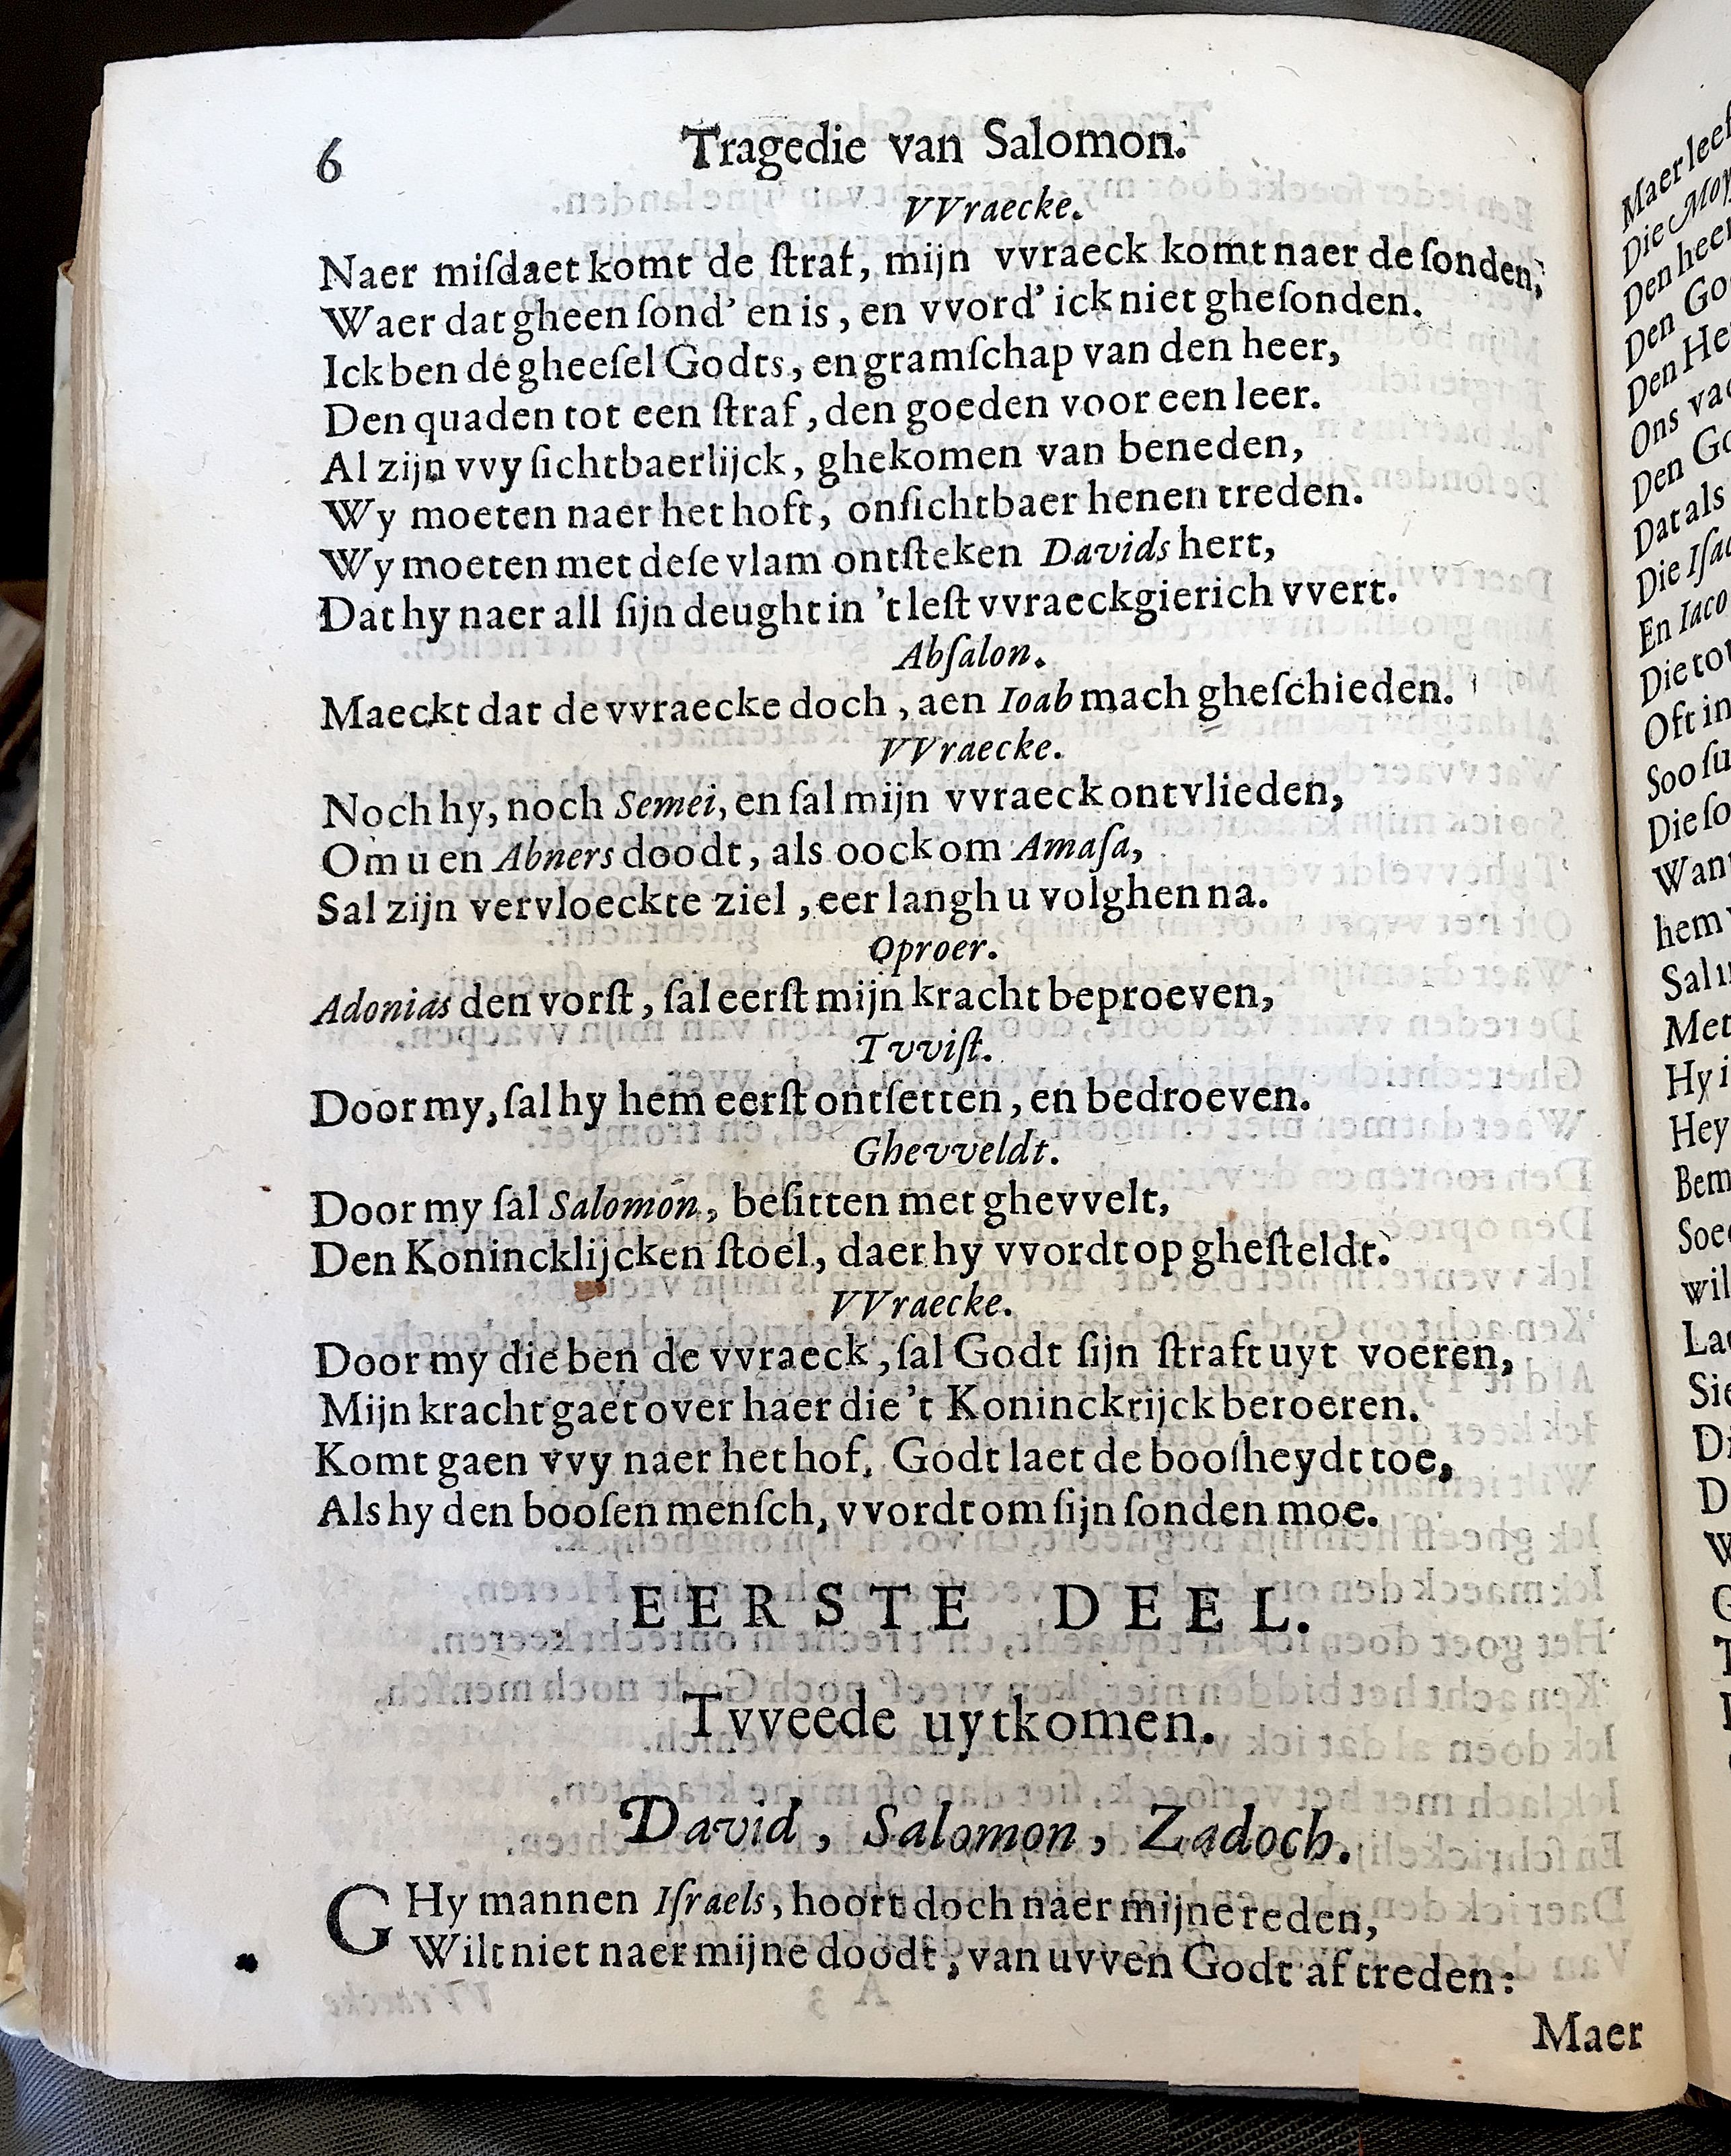 6 Tragedie van Salomon.
VVraecke.
Naer miſdaet komt de ſtraf, mijn vvraeck komt naer de ſonden,
Waer dat gheen ſond' en is, en vvord' ick niet gheſonden.
Ick ben de gheeſel Godts, en gramſchap van den heer,
Den quaden tot een ſtraf, den goeden voor een leer.
Al zijn vvy ſichtbaerlijck, ghekomen van beneden,
Wy moeten naer het hoft, onſichtbaer henen treden.
Wy moeten met deſe vlam ontſteken Davids hert,
Dat hy naer all ſijn deught in 't leſt vvraeckgierich vvert.
Abſalon.
Maeckt dat de vvraecke doch, aen Ioab mach gheſchieden.
VVraecke.
Noch hy, noch Semei, en ſal mijn vvraeck ontvlieden,
Om u en Abners doodt, als oock om Amaſa,
Sal zijn vervloeckte ziel, eer langh u volghen na.
Oproer.
Adonias den vorſt, ſal eerſt mijn kracht beproeven,
Tvviſt.
Door my, ſal hy hem eerſt ontſetten, en bedroeven.
Ghevveldt.
Door my ſal Salomon, beſitten met ghevvelt,
Den Konincklijcken ſtoel, daer hy vvordt op gheſteldt.
VVraecke.
Door my die ben de vvraeck, ſal Godt ſijn ſtraft uyt voeren,
Mijn kracht gaet over haer die 't Koninckrijck beroeren.
Komt gaen vvy naer het hof, Godt laet de boosheydt toe,
Als hy den booſen menſch, vvordt om ſijn ſonden moe.
EERSTE DEEL.
Tvveede uytkomen.
David, Salomon, Zadoch.
GHy mannen Iſraels, hoort doch naer mijne reden,
Wilt niet naer mijne doodt, van uvven Godt af treden:
Maer
Maer leef
Die Moy
Den heer
Den Go
Den He
Ons va
Den Go
Dat als
Die Iſaa
En Iaco
Die to
Oft in
Soo ſu
Die ſo
Wan
hem
Sal
Met
Hy i
Hey
Bem
Soe
wil
La
Sie
D
D
W
G